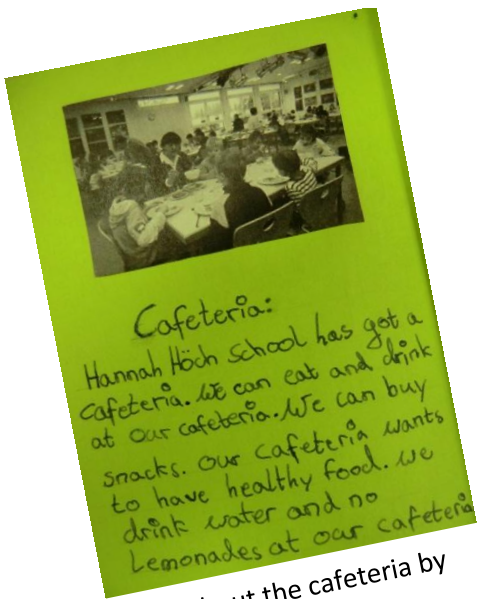 Cafeteria:
Hannah Höch School has got a
cafeteria. We can eat and drink
at our cafeteria. We can buy
snacks. Our cafeteria wants
to have healthy food. We
drink water and no
Lemonades at our cafeteria
the cafeteria by